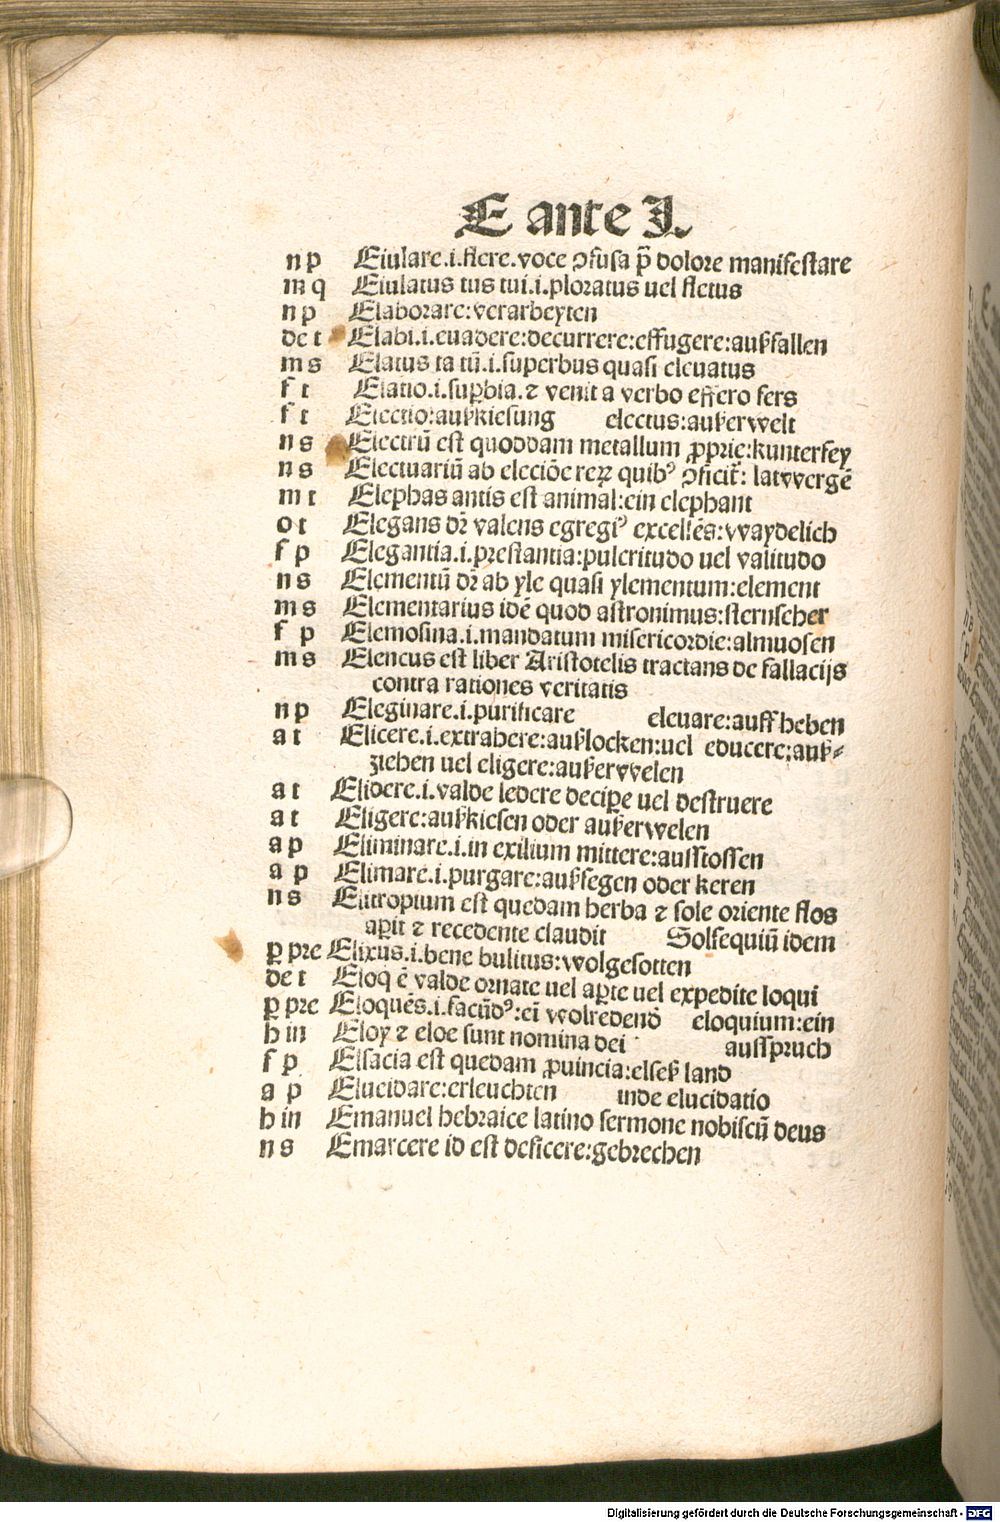 E ante I.
n p Eiulare.i.flere.voce ↄfusa p̄ dolore manifestare
m q Eiulatus tus tui.i.ploratus uel fletus
n p Elaborare:verarbeyten
de t Elabi.i.euadere:decurrere:effugere:außfallen
m s Elatus ta tū.i.superbus quasi eleuatus
f t Elatio.i.suꝑbia.⁊ venit a verbo effero fers
f t Electio:außkiesung electus:außerwelt
n s Electrū est quoddam metallum ꝓprie:kunterfey
n s Electuariū ab eleciōe reꝝ quibꝰ ↄficit᷑: latvvergē
m t Elephas antis est animal:ein elephant
o t Elegans dr̄ valens egregiꝰ excellēs:vvaydelich
f p Elegantia.i.prestantia:pulcritudo uel valitudo
n s Elementū dr̄ ab yle quasi ylementum:element
m s Elementarius idē quod astronimus:sternseher
f p Elemosina.i.mandatum misericordie:almuosen
m s Elencus est liber Aristotelis tractans de fallacijs
contra rationes veritatis
n p Eleginare.i.purificare eleuare:auffheben
a t Elicere.i.extrahere:außlocken:uel educere:auß⸗
ziehen uel eligere:außervvelen
a t Elidere.i.valde ledere deciꝑe uel destruere
a t Eligere:außkiesen oder außerwelen
a p Eliminare.i.in exilium mittere:ausstossen
a p Elimare.i.purgare:außfegen oder keren
n s Elitropium est quedam herba ⁊ sole oriente flos
aꝑit ⁊ recedente claudit Solsequiū idem
ꝑ pre Elixus.i.bene bulitus:wolgesotten
de t Eloq ē valde ornate uel aꝑte uel expedite loqui
ꝑ pre Eloquēs.i.facūdꝰ:eī wolredend̄ eloquium:ein
h in Eloy ⁊ eloe sunt nomina dei ausspruch
f p Elsacia est quedam ꝓuincia:elseß land
a p Elucidare:erleuchten inde elucidatio
h in Emanuel hebraice latino sermone nobiscū deus
n s Emarcere id est deficere:gebrechen
Digitalisierung gefördert durch die Deutsche Forschungsgemeinschaft - DFG